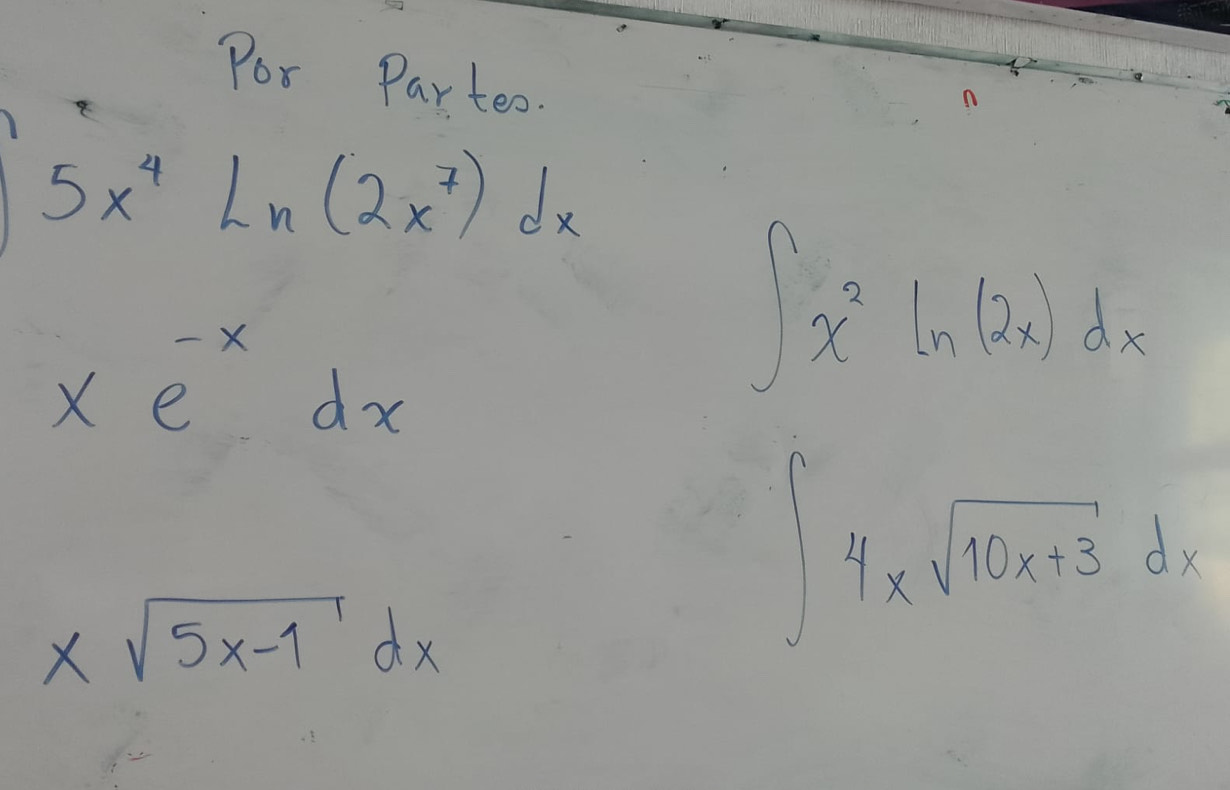 Por Partes.
∫ 5x⁴ Ln (2x⁷) dx
x e⁻ˣ dx
x √(5x-1) dx
∫ x² ln (2x) dx
∫ 4x √(10x+3) dx